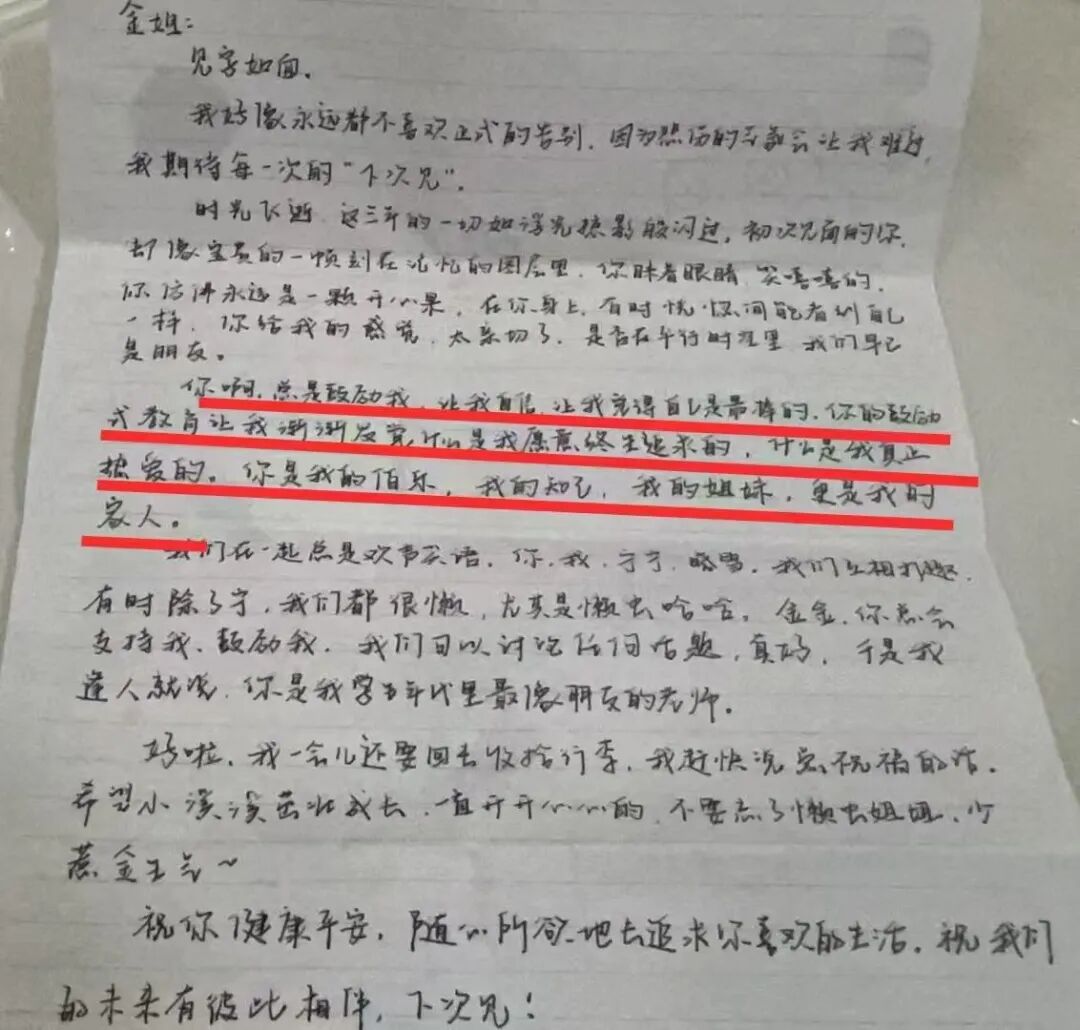 金姐：
见字如面。
我好像永远都不喜欢正式的告别，因为煞伤的氛氛会让我难过，
我期待每一次的“下次见”。
时光飞逝，这三年的一切如浮光掠影般闪过，初次见面的你，
却像宝贵的一帧刻在记忆的图层里，你眯着眼睛，笑嘻嘻的，
你仿佛永远是一颗开心果，在你身上，有时恍惚间能看到自己
一样，你给我的感觉，太亲切了，是否在平行时空里，我们早已
是朋友。
你啊，总是鼓励我，让我自信，让我觉得自己是最棒的，你的鼓励
式教育让我渐渐发觉，什么是我愿意终生追求的，什么是我真正
热爱的。你是我的伯乐，我的知己，我的姐妹，更是我的
家人。
我们在一起总是欢声笑语，你，我，宁宁，晓雪，我们互相打趣，
有时除了宁，我们都很懒，尤其是懒虫哈哈。金金，你总会
支持我、鼓励我，我们可以讨论任何话题，真好，于是我
逢人就说，你是我学生年代里最像朋友的老师。
好啦，我一会儿还要回去收拾行李，我赶快说完祝福的话，
希望小溪溪茁壮成长，一直开开心心的，不要忘了懒虫姐姐，少
惹金生气~
祝你健康平安，随心所欲地去追求你喜欢的生活，祝我们
的未来有彼此相伴，下次见！